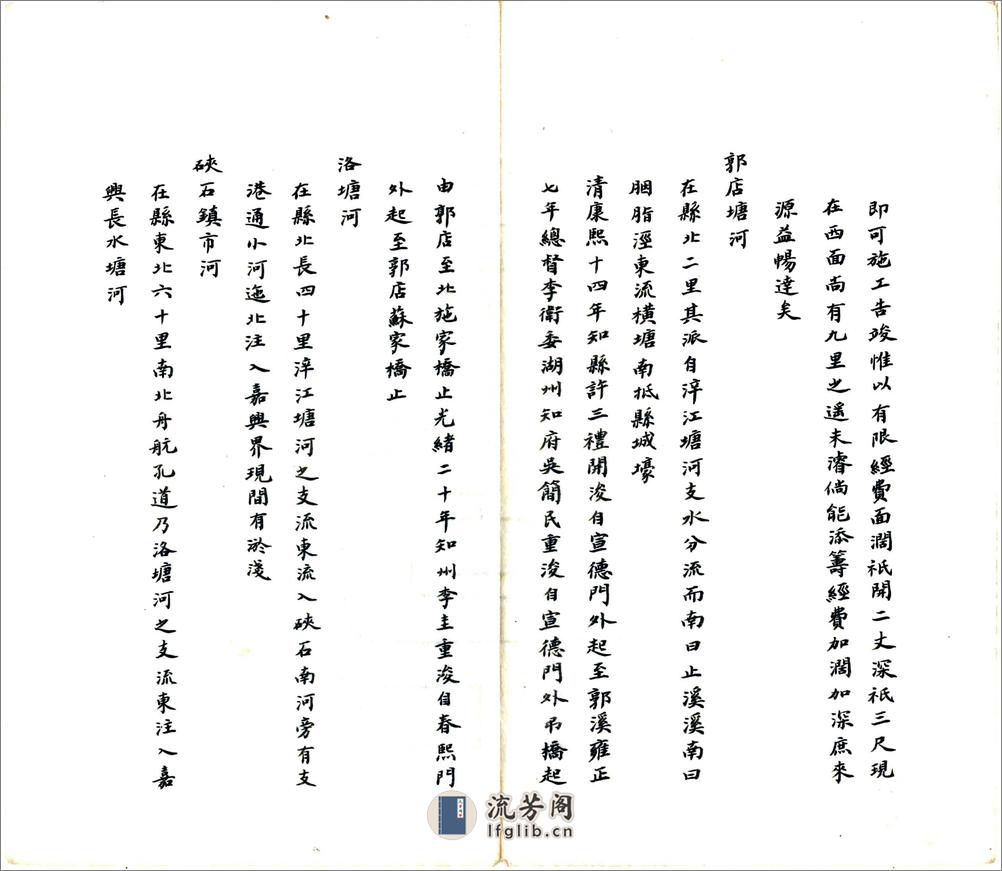 即可施工告竣惟以有限經費面濶祇開二丈深祇三尺現
在西面尚有九里之遥未濬倘能添籌經費加濶加深庶來
源益暢達矣
郭店塘河
在縣北二里其派自淬江塘河支水分流而南曰止溪溪南曰
胭脂溼東流橫塘南抵縣城壕
清康熙十四年知縣許三禮開浚自宣德門外起至郭溪雍正
七年總督李衛委湖州知府吳簡民重浚自宣德門外吊橋起
由郭店至北施家橋止光緒二十年知州李圭重浚自春熙門
外起至郭店蘇家橋止
洛塘河
在縣北長四十里淬江塘河之支流東流入硤石南河旁有支
港通小河迤北注入嘉興界現間有淤淺
硤石鎮市河
在縣東北六十里南北舟航孔道乃洛塘河之支流東注入嘉
興長水塘河
流芳阁
lfglib.cn